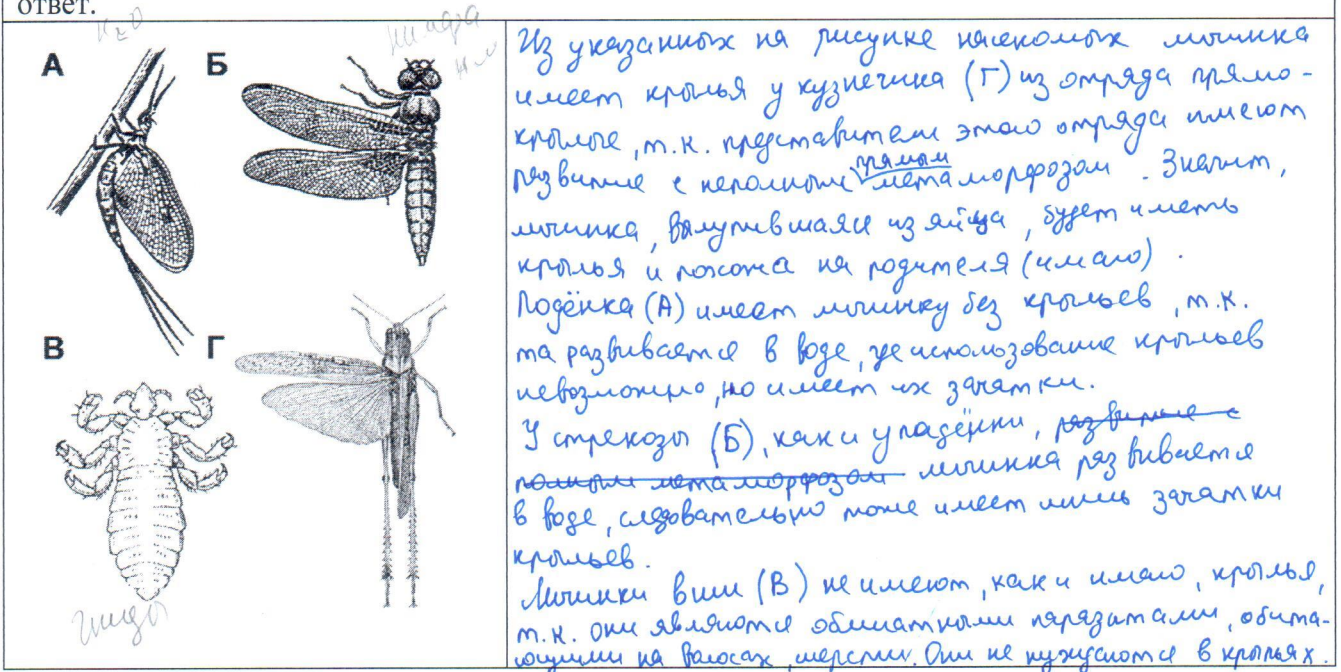 ответ.
H2O
наяда
А
Б
В
Г
гниды
Из указанных на рисунке насекомых личинка
имеет крылья у кузнечика (Г) из отряда прямо-
крылые, т.к. представители этого отряда имеют
развитие с неполным прямым метаморфозом. Значит,
личинка, вылупившаяся из яйца, будет иметь
крылья и похожа на родителя (имаго).
Подёнка (А) имеет личинку без крыльев, т.к.
та развивается в воде, где использование крыльев
невозможно, но имеет их зачатки.
У стрекозы (Б), как и у падёнки, развитие с
полным метаморфозом личинка развивается
в воде, следовательно тоже имеет лишь зачатки
крыльев.
Личинки вши (В) не имеют, как и имаго, крылья,
т.к. они являются облигатными паразитами, обита-
ющими на волосах, шерсти. Они не нуждаются в крыльях.